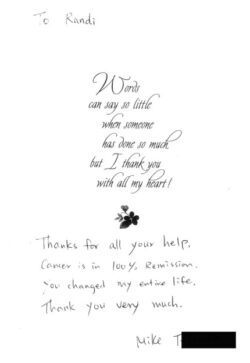 To Randi
Words
can say so little
when someone
has done so much
but I thank you
with all my heart!
Thanks for all your help.
Cancer is in 100% Remission.
You changed my entire life.
Thank you very much.
Mike T